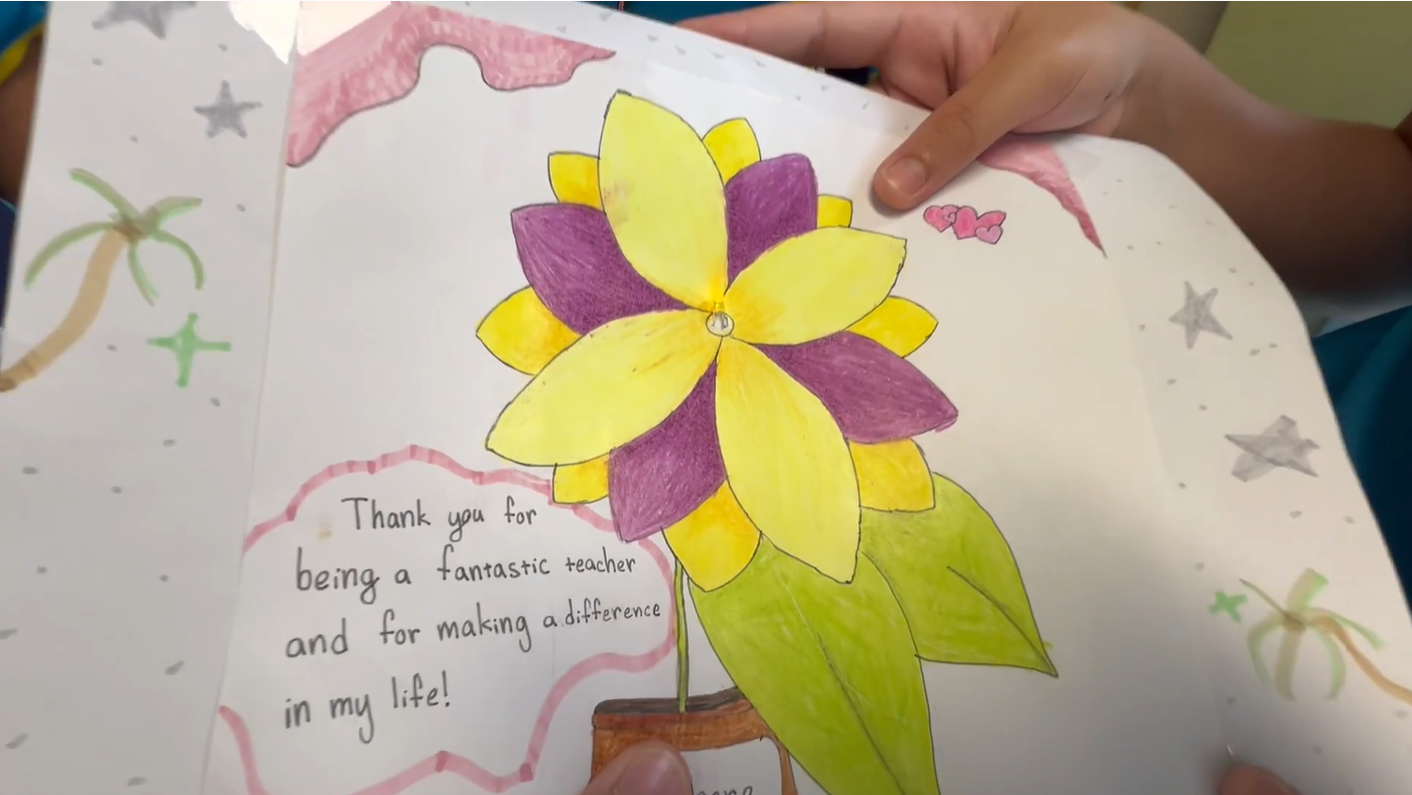 Thank you for
being a fantastic teacher
and for making a difference
in my life!